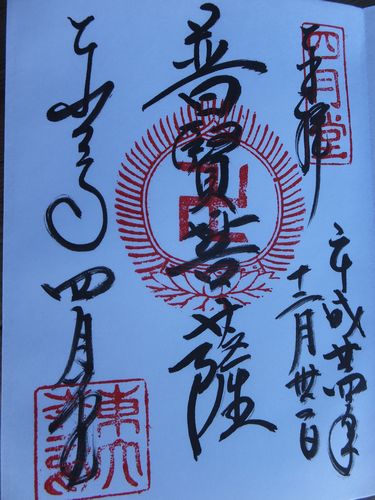 四月堂
奉拝
平成廿四年
十二月廿二日
普賢菩薩
東大寺 四月堂
東大